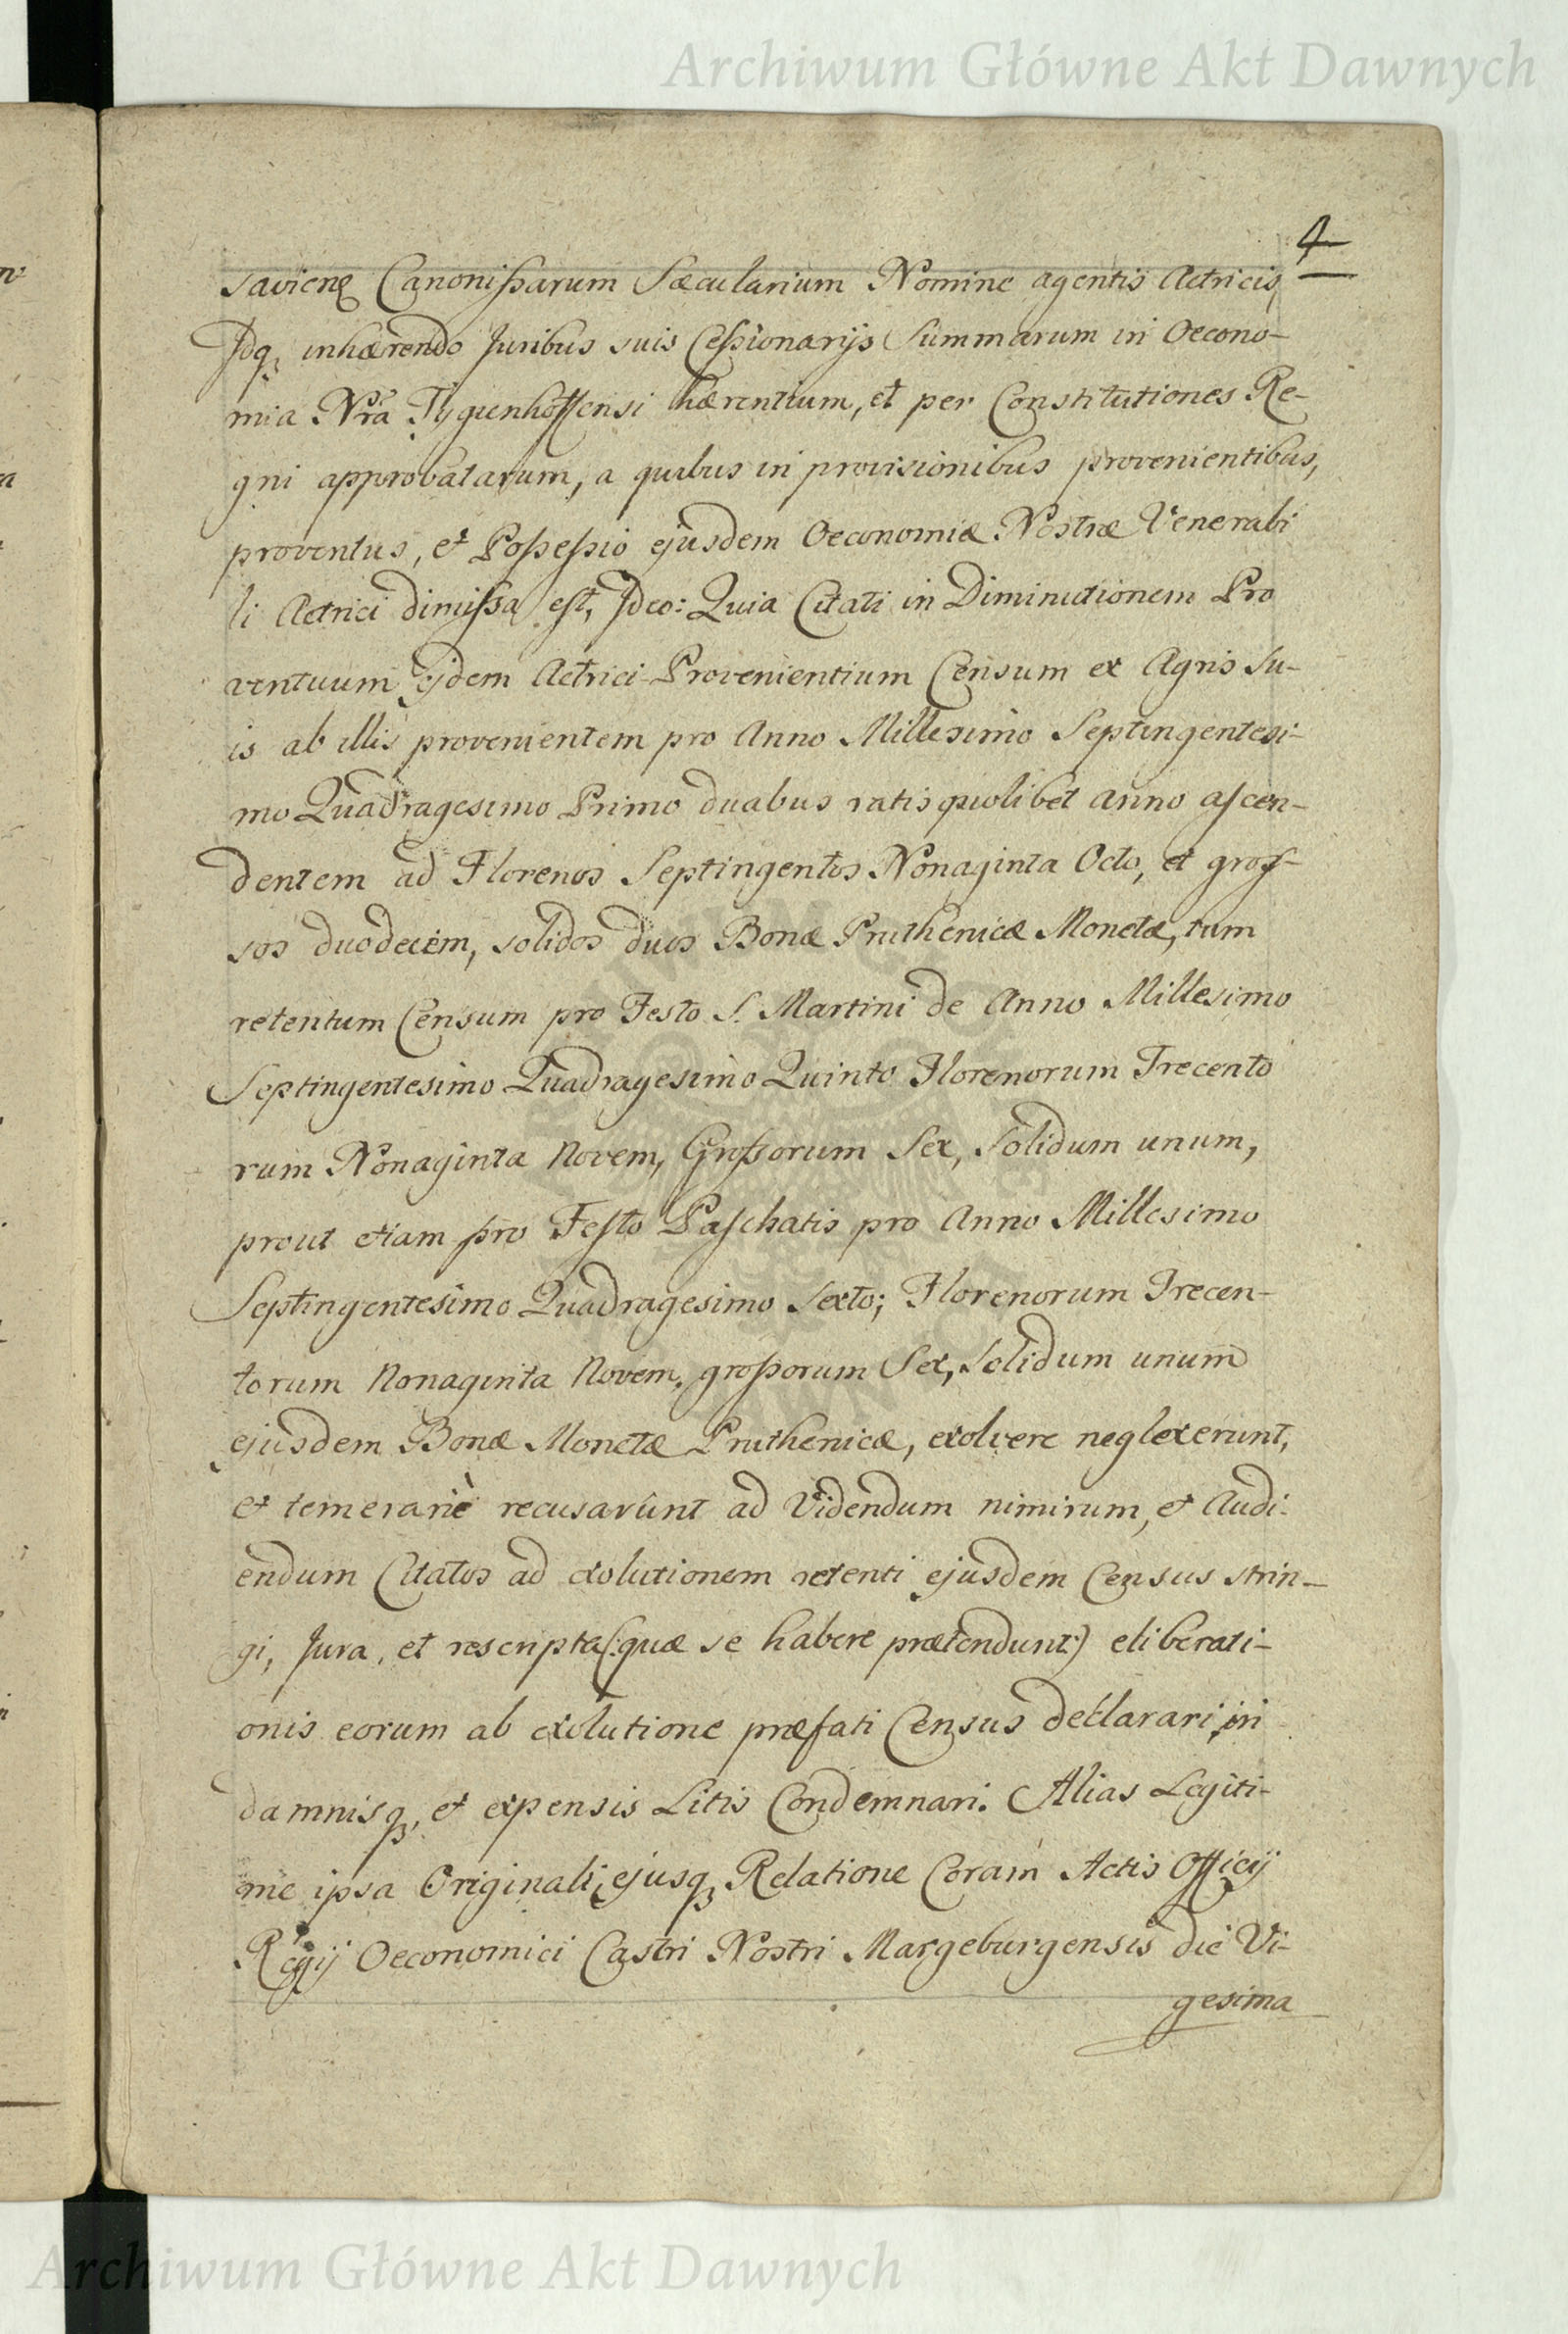 Archiwum Główne Akt Dawnych
4
saviens Canonissarum Sæcularium Nomine agentis Actricis,
Idq, inhærendo Juribus suis Cessionarijs Summarum in Oecono-
mia Nrã Tygunhoffensi hærentium, et per Constitutiones Re-
gni approbatarum, a quibus in provisionibus provenientibus,
proventus, et Possessio ejusdem Oeconomiæ Nostræ Venerabi
li Actrici dimissa est, Ideo: Quia Citati in Diminutionem Pro
ventuum ejdem Actrici Provenientium Censum ex Agris su-
is ab illis provenientem pro Anno Millesimo Septingentesi-
mo Quadragesimo Primo duabus ratis quolibet anno ascen-
dentem ad Florenos Septingentos Nonaginta Octo, et gros-
sos duodecim, solidos duos Bonæ Pruthenicæ Monetæ, tum
retentum Censum pro Festo S. Martini de Anno Millesimo
Septingentesimo Quadragesimo Quinto Florenorum Trecento
rum Nonaginta Novem, Grossorum Sex, solidum unum,
prout etiam pro Festo Paschatis pro Anno Millesimo
Septingentesimo Quadragesimo Sexto; Florenorum Trecen-
torum Nonaginta Novem, grossorum Sex, Solidum unum
ejusdem Bonæ Monetæ Pruthenicæ, exolvere neglexerunt,
et temerariè recusarunt ad Videndum nimirum, et Audi-
endum Citatos ad exolutionem retenti ejusdem Census strin-
gi, Jura, et rescripta (:quæ se habere prætendunt:) eliberati-
onis eorum ab exolutione præfati Census declarari, in
damnisq, et expensis Litis Condemnari. Alias Legiti-
me ipsa Originali, ejusq, Relatione Coram Actis Officij
Regij Oeconomici Castri Nostri Margeburgensis die Vi-
gesima
Archiwum Główne Akt Dawnych